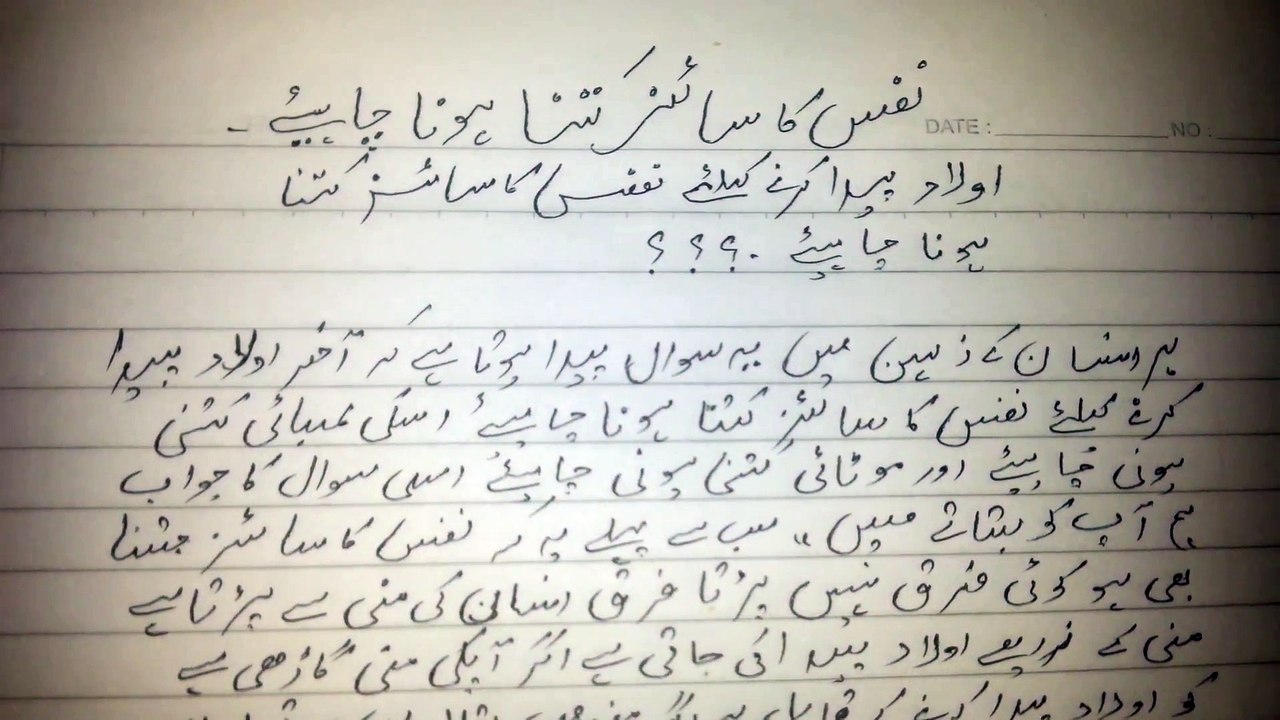 نفس کا سائز کتنا ہونا چاہیئے۔
DATE : NO :
اولاد پیدا کرنے کیلئے نفس کا سائز کتنا
ہونا چاہیئے ۔؟؟؟
ہر انسان کے ذہین میں یہ سوال پیدا ہوتا ہے کہ آخر اولاد پیدا
کرنے کیلئے نفس کا سائز کتنا ہونا چاہیئے اسکی لمبائی کتنی
ہونی چاہیئے اور موٹائی کتنی ہونی چاہیئے اس سوال کا جواب
ہم آپ کو بتاتے ہیں،، سب سے پہلے یہ کہ نفس کا سائز جتنا
بھی ہو کوئی فرق نہیں پڑتا فرق انسان کی منی سے پڑتا ہے
منی کے ذریعے اولاد پیدا کی جاتی ہے اگر آپکی منی گاڑھی ہے
کو اولاد پیدا کرنے کے